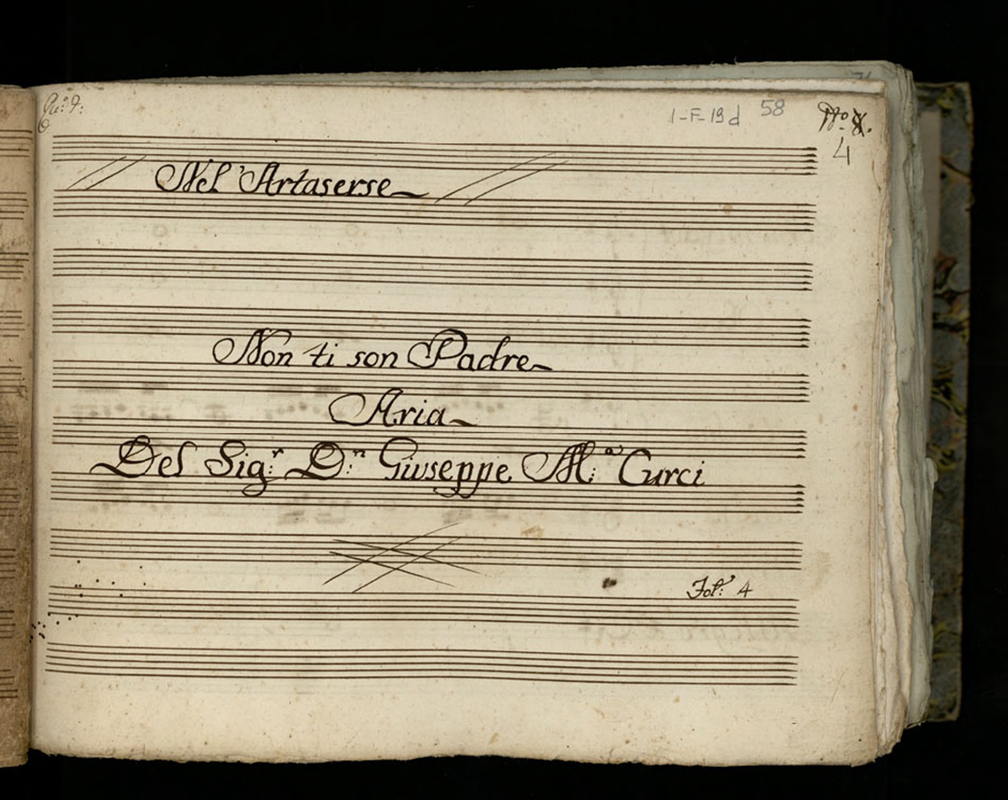 I-F-19d 58
4
Nel' Artaserse
Non ti son Padre
Aria
Del Sig:r D:n Giuseppe M:a Curci
Fol: 4